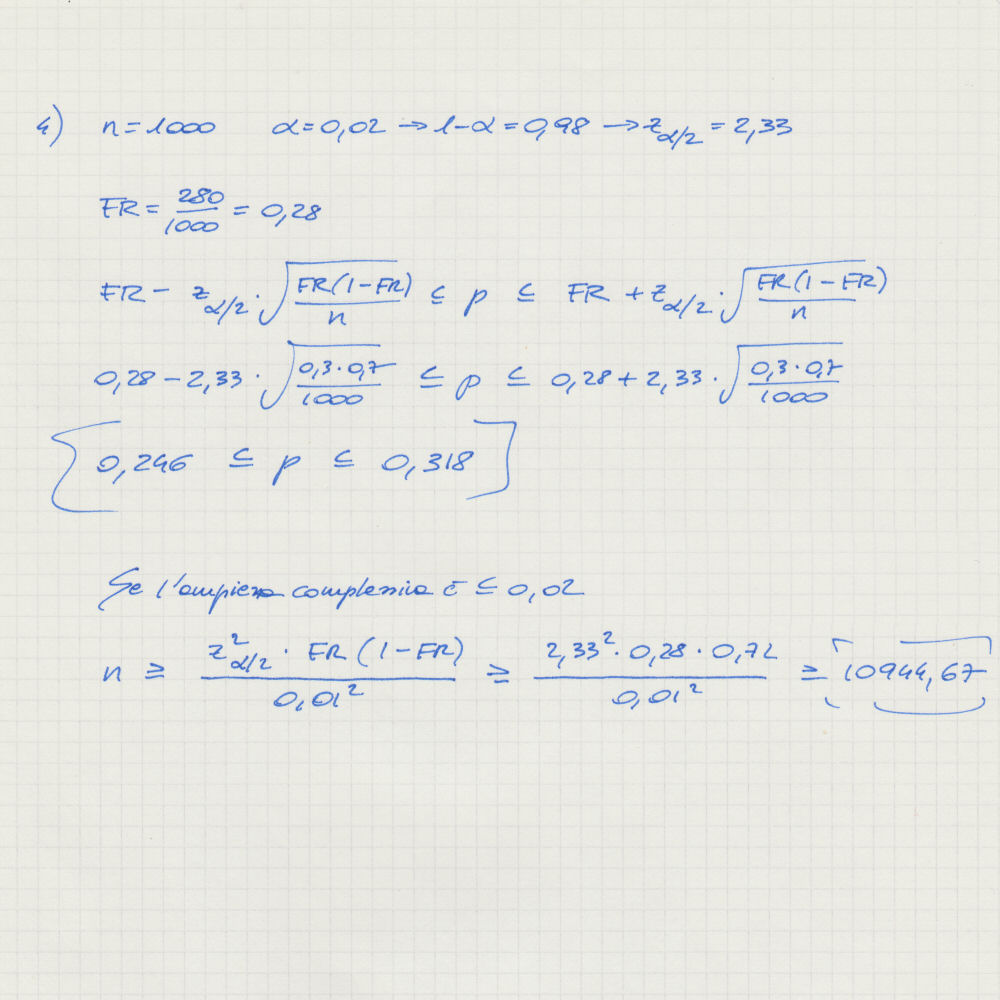 4) n=1000 α=0,02 → 1-α=0,98 → z_α/2 = 2,33
FR = 280/1000 = 0,28
FR - z_α/2 · √(FR(1-FR)/n) ≤ p ≤ FR + z_α/2 · √(FR(1-FR)/n)
0,28 - 2,33 · √(0,3·0,7/1000) ≤ p ≤ 0,28 + 2,33 · √(0,3·0,7/1000)
[0,246 ≤ p ≤ 0,318]
Se l'ampiezza complessiva è ≤ 0,02
n ≥ z²_α/2 · FR(1-FR)/0,01² ≥ 2,33² · 0,28 · 0,72/0,01² ≥ [10944,67]